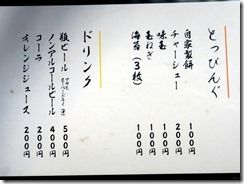 とっぴんぐ
自家製餅 100円
チャーシュー 200円
味玉 100円
玉ねぎ 100円
海苔（3枚） 100円
ドリンク
瓶ビール 500円
ノンアルコールビール 400円
コーラ 200円
オレンジジュース 200円